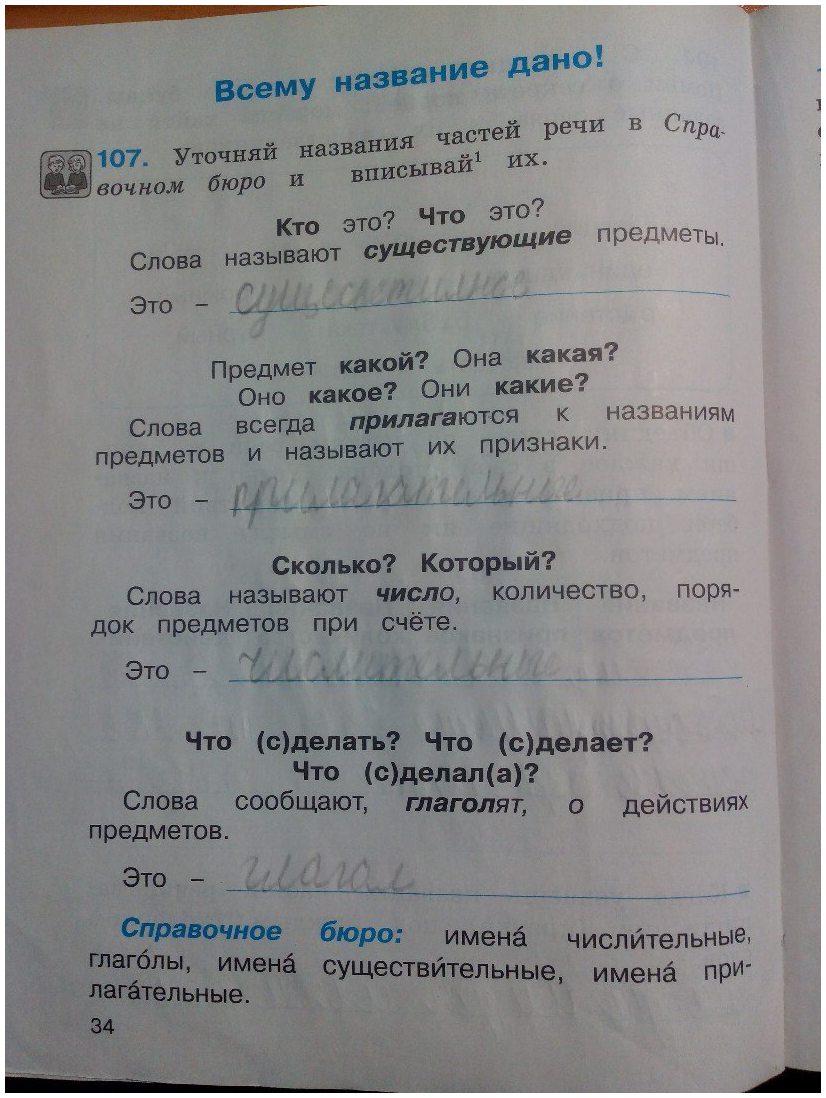 Всему название дано!
107. Уточняй названия частей речи в Спра-
вочном бюро и вписывай¹ их.
Кто это? Что это?
Слова называют существующие предметы.
Это –
Предмет какой? Она какая?
Оно какое? Они какие?
Слова всегда прилагаются к названиям
предметов и называют их признаки.
Это – прилагательные
Сколько? Который?
Слова называют число, количество, поря-
док предметов при счёте.
Это – числительные
Что (с)делать? Что (с)делает?
Что (с)делал(а)?
Слова сообщают, глаголят, о действиях
предметов.
Это – глагол
Справочное бюро: имена́ числи́тельные,
глаго́лы, имена́ существи́тельные, имена́ при-
лага́тельные.
34